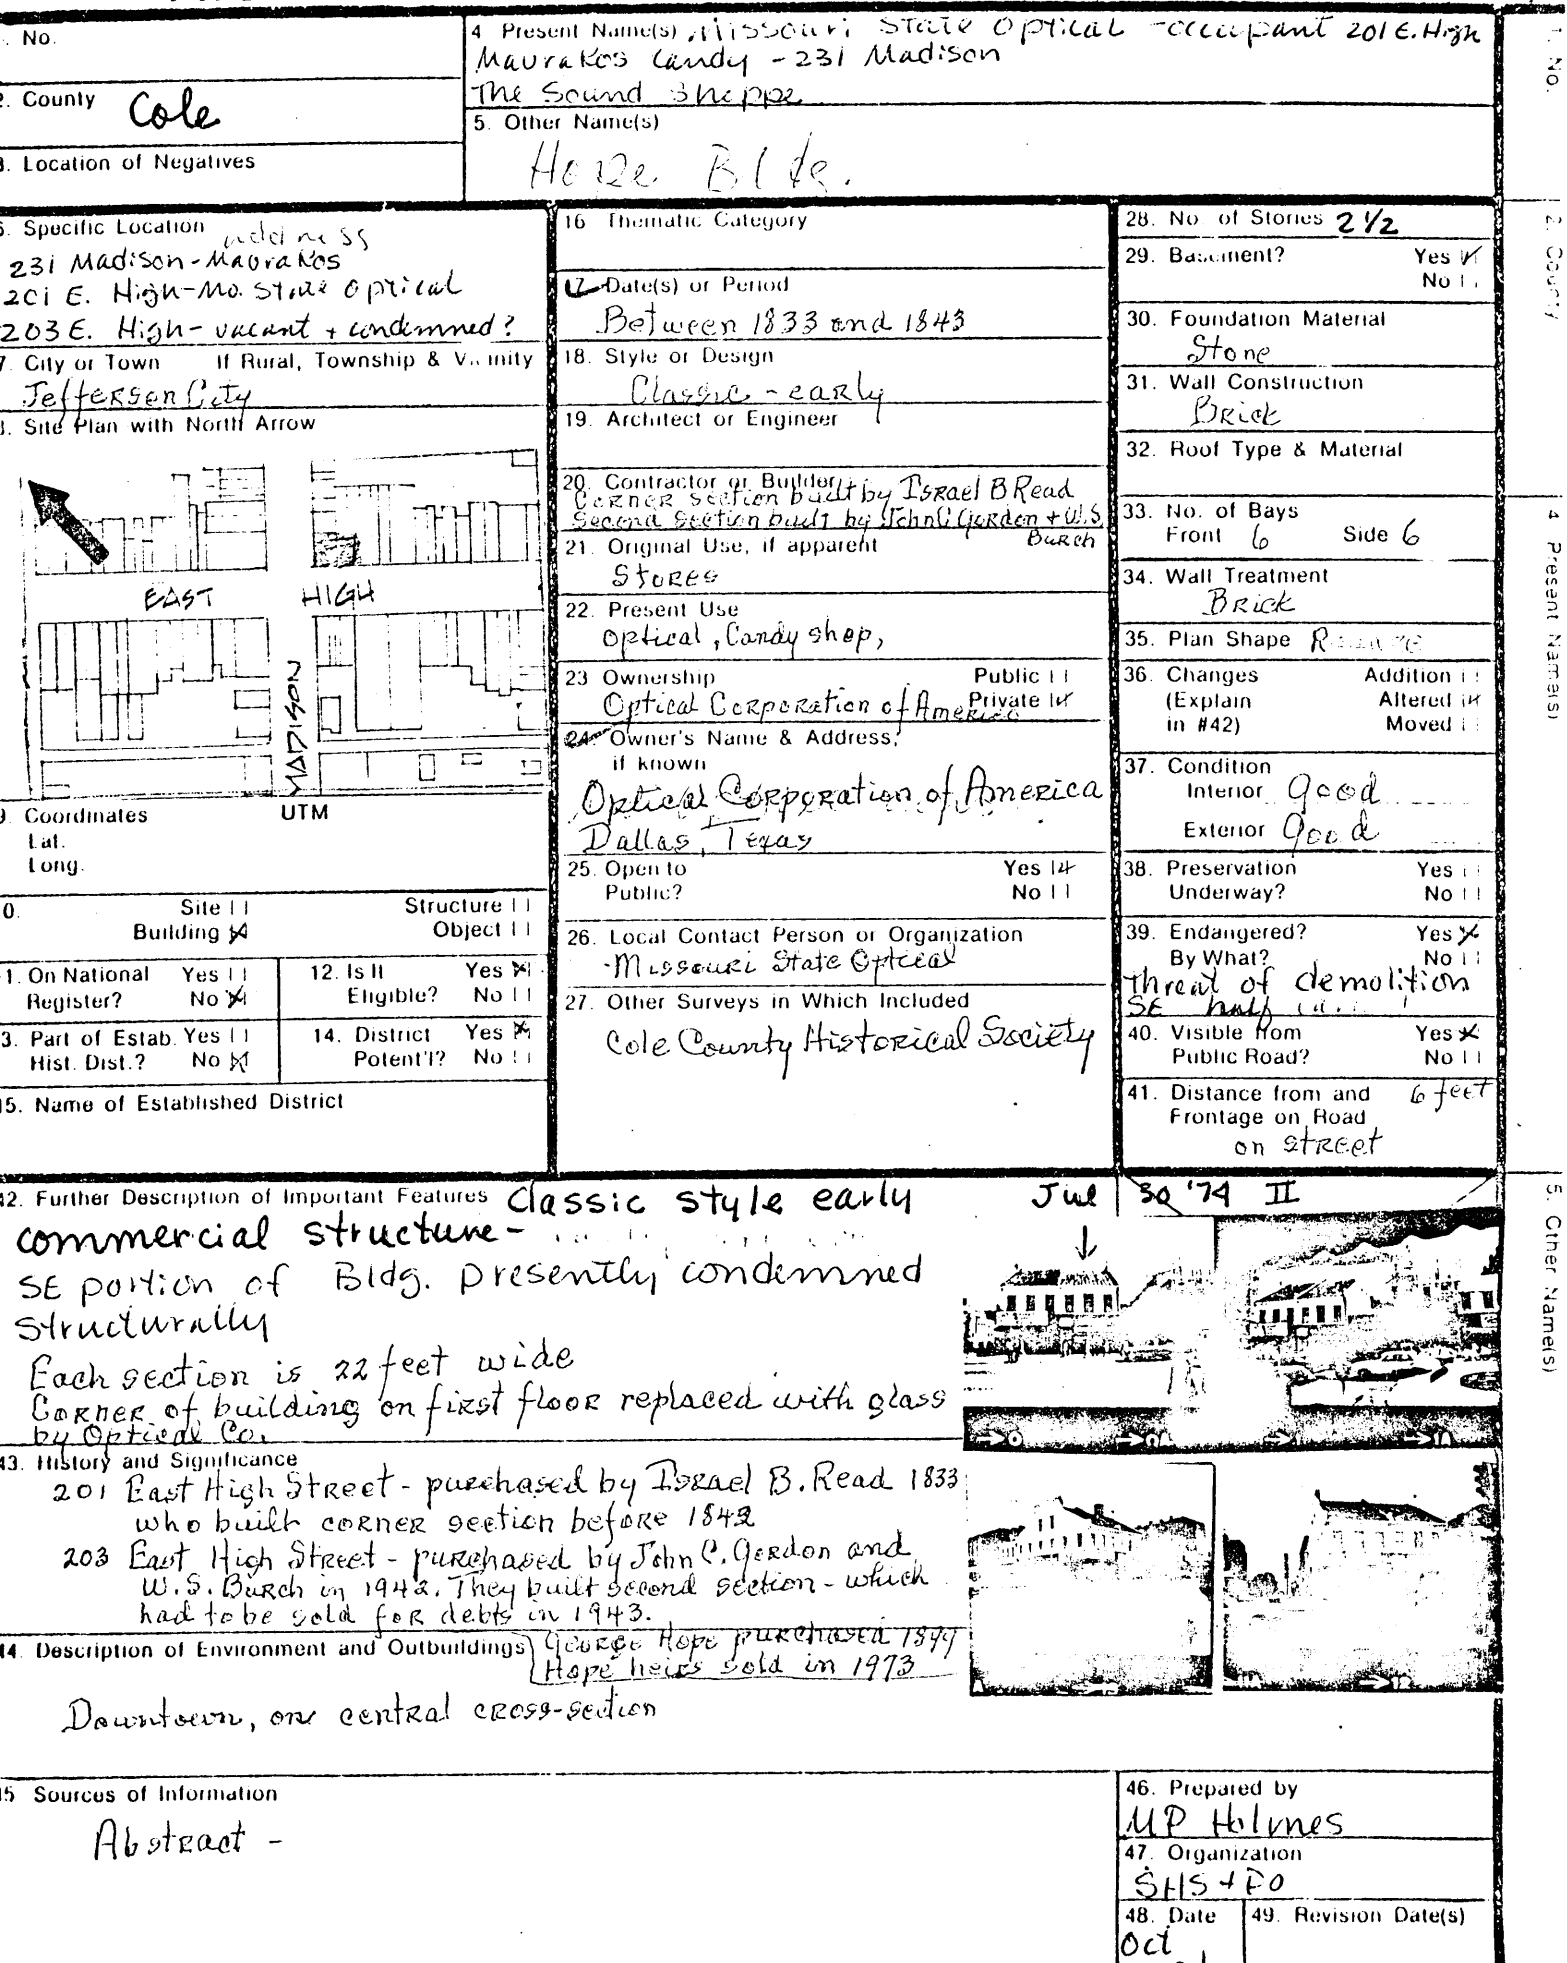 No.
4 Present Name(s) Missouri State Optical - occupant 201 E. High
Mavrakos Candy - 231 Madison
The Sound Shoppe
2. County Cole
5. Other Name(s)
Hope Bldg.
3. Location of Negatives
6. Specific Location address
231 Madison - Mavrakos
201 E. High - Mo. State Optical
203 E. High - vacant + condemned?
7. City or Town If Rural, Township & Vicinity
Jefferson City
8. Site Plan with North Arrow
EAST HIGH
MADISON
9. Coordinates UTM
Lat.
Long.
0. Site Structure
Building X Object
1. On National Register? Yes No X
12. Is It Eligible? Yes X No
3. Part of Estab. Hist. Dist.? Yes No X
14. District Potent'l? Yes X No
15. Name of Established District
16 Thematic Category
17 Date(s) or Period
Between 1833 and 1843
18. Style or Design
Classic - early
19. Architect or Engineer
20. Contractor or Builder
Corner section built by Israel B Read
Second section built by John C Gordon + W.S.
Burch
21. Original Use, if apparent
Stores
22. Present Use
Optical, Candy shop,
23 Ownership Public
Optical Corporation of America Private
24. Owner's Name & Address,
if known
Optical Corporation of America
Dallas, Texas
25. Open to Yes
Public? No
26. Local Contact Person or Organization
Missouri State Optical
27. Other Surveys in Which Included
Cole County Historical Society
28. No. of Stories 2 1/2
29. Basement? Yes
No
30. Foundation Material
Stone
31. Wall Construction
Brick
32. Roof Type & Material
33. No. of Bays
Front 6 Side 6
34. Wall Treatment
Brick
35. Plan Shape
36. Changes Addition
(Explain Altered
in #42) Moved
37. Condition
Interior Good
Exterior Good
38. Preservation Yes
Underway? No
39. Endangered? Yes X
By What? No
threat of demolition
SE half
40. Visible from Yes X
Public Road? No
41. Distance from and 6 feet
Frontage on Road
on street
42. Further Description of Important Features Classic style early
commercial structure -
SE portion of Bldg. presently condemned
structurally
Each section is 22 feet wide
Corner of building on first floor replaced with glass
by Optical Co.
Jul 30 '74 II
43. History and Significance
201 East High Street - purchased by Israel B. Read 1833
who built corner section before 1842
203 East High Street - purchased by John C. Gordon and
W.S. Burch in 1942. They built second section - which
had to be sold for debts in 1943.
George Hope purchased 1899
Hope heirs sold in 1973
44. Description of Environment and Outbuildings
Downtown, one central cross-section
45 Sources of Information
Abstract -
46. Prepared by
MP Holmes
47. Organization
SHS + PO
48. Date
Oct
49. Revision Date(s)
1. No.
2. County
4 Present Name(s)
5. Other Name(s)